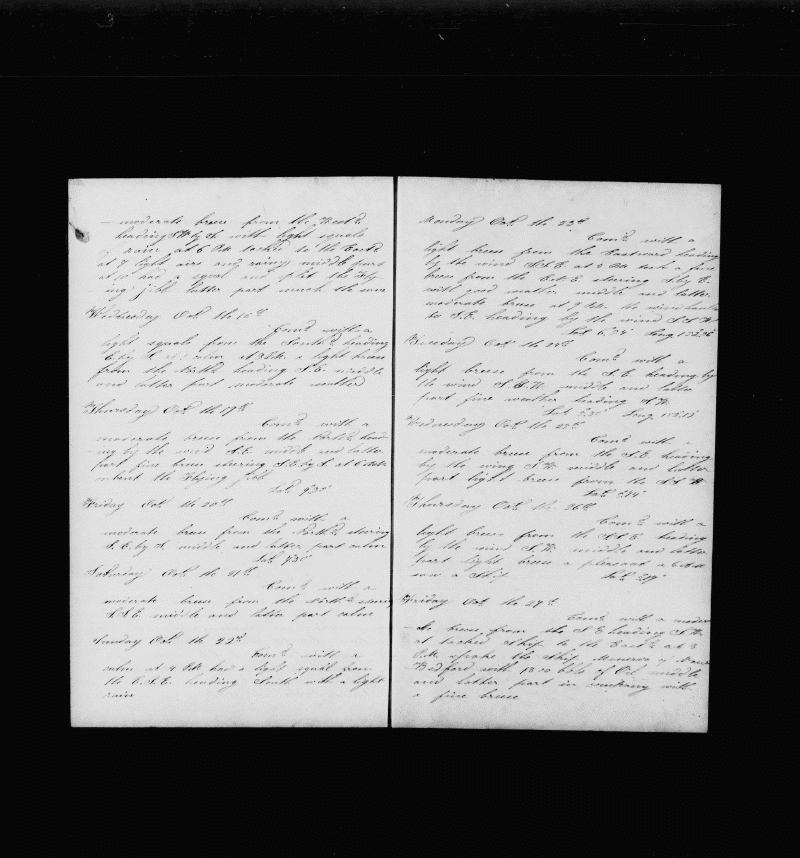 3
moderate breese from the West
heading S W by S with light squals
of rain at 6 P.M. tacked to the East
at 7 light airs and rainy middle part
at 10 had a squal and split the Fly-
ing jibb latter part much the same
Wednesday Oct. the
Comc with a
light squals from the South heading
of rain at 3 P.M. a light breese
from the North heading S.E. middle
and latter part moderate weather
Thursday Oct the 19th
Comc with a
moderate breese from the North head
ing by the wind S.E. middle and latter
part fine breese stearing S.E. by S. at 6 A.M.
bent the Flying jib
Lat
Friday Oct the 20th
Comc with a
moderate breese from the North stearing
S.E. by S. middle and latter part calm
Lat
Saturday Oct the 21st
Comc with a
moderate breese from the North stearing
S.S.E. middle and latter part calm
Sunday Oct the 22d
Comc with a
calm at 4 P.M. had a light squal from
the E.S.E. heading South with a light
rain
Monday Oct. the 23d
Comc with a
light breese from the Eastward heading
by the wind S.S.E. at 2 P.M. took a fine
breese from the E.N.E. stearing S. by E.
with good weather middle and latter
moderate breese at 9 A.M. the wind hauled
to S.E. heading by the wind
Lat Long
Tuesday Oct the 24th
Comc with a
light breese from the S.E. heading by
the wind S.S.W. middle and latter
part fine weather heading S.W.
Lat Long
Wednesday Oct the 25th
Comc with a
moderate breese from the S.E. heading
by the wing S.W. middle and latter
part light breese from the
Lat
Thursday Oct the 26th
Comc with a
light breese from the S.S.E. heading
by the wind S.W. middle and latter
part light breese & pleasant a 6 A.M.
saw a Ship Lat
Friday Oct. the 27th
Comc with a modera
te breese from the S.E. heading S.W.
at tacked Ship to the East at 3
P.M. spoke the Ship Minerva of New
Bedford with bbls of Oil middle
and latter part in company with
a fine breese